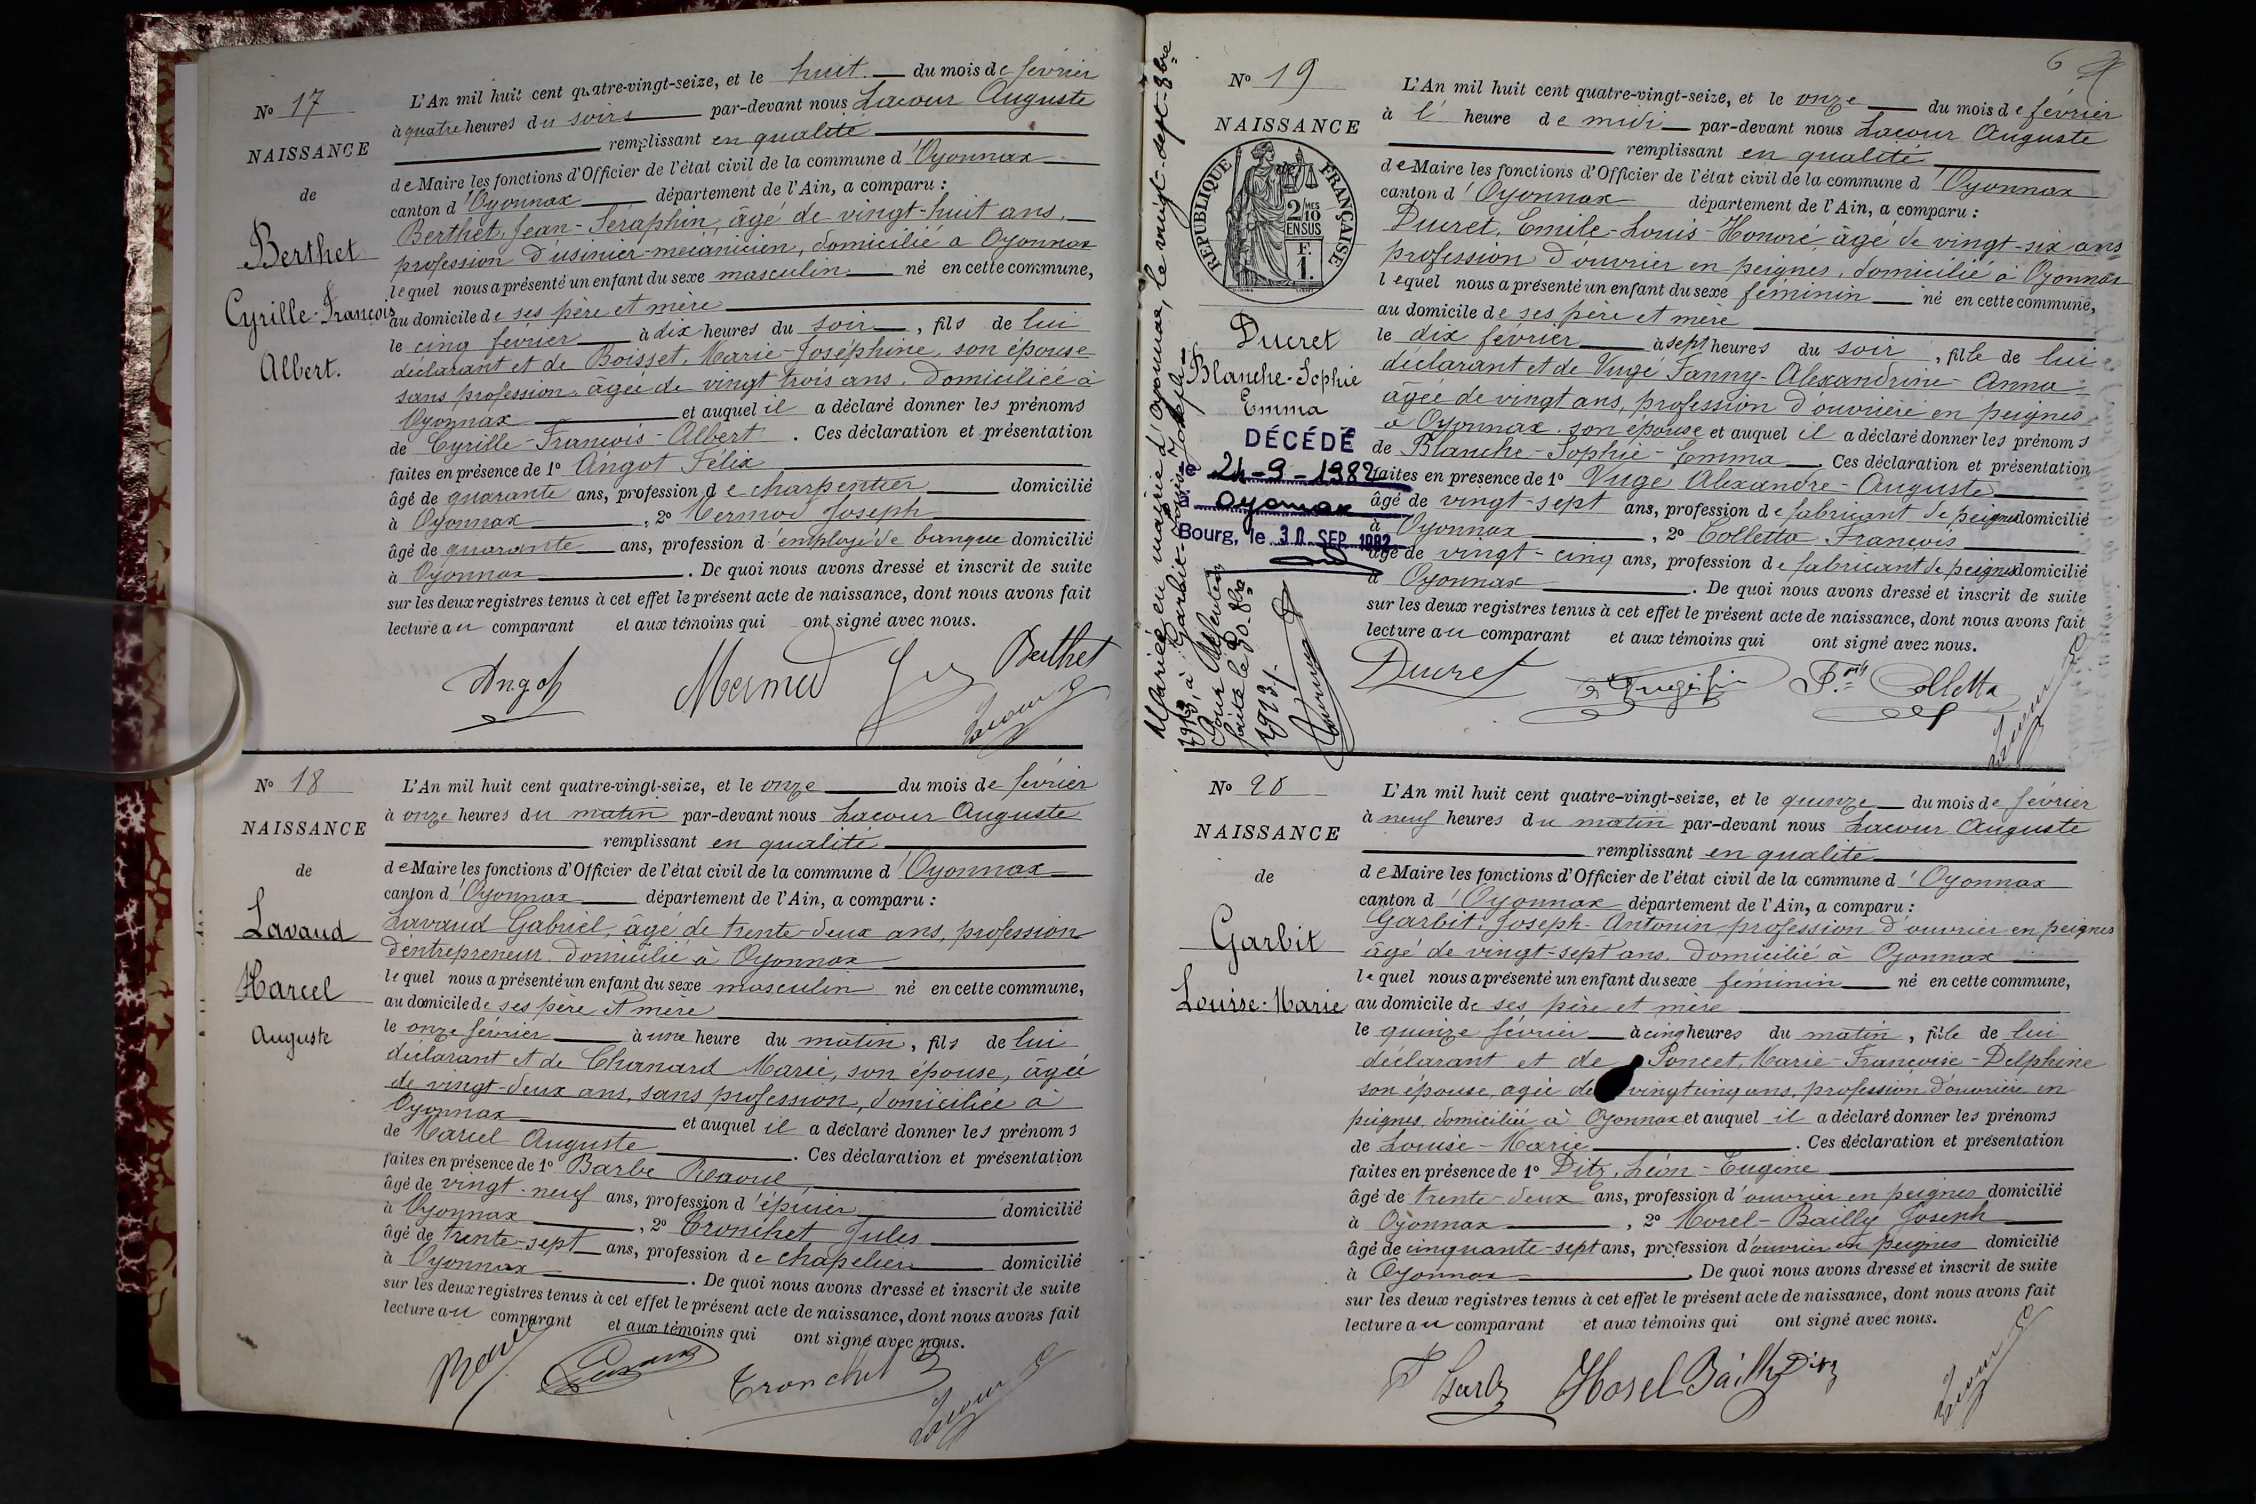 N° 17
NAISSANCE
de
Berthet
Cyrille-François
Albert.
L'An mil huit cent quatre-vingt-seize, et le huit du mois de février
à quatre heures du soir par-devant nous Lacour Auguste
remplissant en qualité
de Maire les fonctions d'Officier de l'état civil de la commune d'Oyonnax
canton d'Oyonnax département de l'Ain, a comparu :
Berthet, Jean-Séraphin, âgé de vingt-huit ans,
profession d'usinier-mécanicien, domicilié à Oyonnax
lequel nous a présenté un enfant du sexe masculin né en cette commune,
au domicile de ses père et mère
le cinq février à dix heures du soir, fils de lui
déclarant et de Boisset, Marie-Joséphine, son épouse
sans profession, âgée de vingt trois ans, domiciliée à
Oyonnax et auquel il a déclaré donner les prénoms
de Cyrille-François-Albert. Ces déclaration et présentation
faites en présence de 1° Angot Félix
âgé de quarante ans, profession de charpentier domicilié
à Oyonnax, 2° Mermod Joseph
âgé de quarante ans, profession d'employé de banque domicilié
à Oyonnax. De quoi nous avons dressé et inscrit de suite
sur les deux registres tenus à cet effet le présent acte de naissance, dont nous avons fait
lecture au comparant et aux témoins qui ont signé avec nous.
Angot Mermod Berthet
Lacour
N° 18
NAISSANCE
de
Lavaud
Marcel
Auguste
L'An mil huit cent quatre-vingt-seize, et le onze du mois de février
à onze heures du matin par-devant nous Lacour Auguste
remplissant en qualité
de Maire les fonctions d'Officier de l'état civil de la commune d'Oyonnax
canton d'Oyonnax département de l'Ain, a comparu :
Lavaud Gabriel, âgé de trente-deux ans, profession
d'entrepreneur domicilié à Oyonnax
lequel nous a présenté un enfant du sexe masculin né en cette commune,
au domicile de ses père et mère
le onze février à une heure du matin, fils de lui
déclarant et de Chanard Marie, son épouse, âgée
de vingt-deux ans, sans profession, domiciliée à
Oyonnax et auquel il a déclaré donner les prénoms
de Marcel Auguste. Ces déclaration et présentation
faites en présence de 1° Barbe Raoul,
âgé de vingt-neuf ans, profession d'épicier domicilié
à Oyonnax, 2° Tronchet Jules
âgé de trente-sept ans, profession de chapelier domicilié
à Oyonnax. De quoi nous avons dressé et inscrit de suite
sur les deux registres tenus à cet effet le présent acte de naissance, dont nous avons fait
lecture au comparant et aux témoins qui ont signé avec nous.
Tronchet
Lacour
6
N° 19
NAISSANCE
de
RÉPUBLIQUE FRANÇAISE
2/10 MES
EN SUS
F.
1.
Ducret
Blanche-Sophie
Emma
DÉCÉDÉ
le 24-9-1982
à Oyonnax
Bourg, le 30 SEP. 1982
Mariée en mairie d'Oyonnax, le vingt-sept-8bre
1913, à Garbit-Louis-Joseph
Pour Mention
faite le 30-8bre
1913.
L'An mil huit cent quatre-vingt-seize, et le onze du mois de février
à l' heure de midi par-devant nous Lacour Auguste
remplissant en qualité
de Maire les fonctions d'Officier de l'état civil de la commune d'Oyonnax
canton d'Oyonnax département de l'Ain, a comparu :
Ducret, Emile-Louis-Honoré, âgé de vingt-six ans
profession d'ouvrier en peignes, domicilié à Oyonnax
lequel nous a présenté un enfant du sexe féminin né en cette commune,
au domicile de ses père et mère
le dix février à sept heures du soir, fille de lui
déclarant et de Vugé Fanny-Alexandrine-Anna
âgée de vingt ans, profession d'ouvrière en peignes
à Oyonnax, son épouse et auquel il a déclaré donner les prénoms
de Blanche-Sophie-Emma. Ces déclaration et présentation
faites en présence de 1° Vugé Alexandre-Auguste
âgé de vingt-sept ans, profession de fabricant de peignes domicilié
à Oyonnax, 2° Colletta François
âgé de vingt-cinq ans, profession de fabricant de peignes domicilié
à Oyonnax. De quoi nous avons dressé et inscrit de suite
sur les deux registres tenus à cet effet le présent acte de naissance, dont nous avons fait
lecture au comparant et aux témoins qui ont signé avec nous.
Ducret Colletta
Lacour
N° 20
NAISSANCE
de
Garbit
Louise-Marie
L'An mil huit cent quatre-vingt-seize, et le quinze du mois de février
à neuf heures du matin par-devant nous Lacour Auguste
remplissant en qualité
de Maire les fonctions d'Officier de l'état civil de la commune d'Oyonnax
canton d'Oyonnax département de l'Ain, a comparu :
Garbit, Joseph-Antonin, profession d'ouvrier en peignes
âgé de vingt-sept ans, domicilié à Oyonnax
lequel nous a présenté un enfant du sexe féminin né en cette commune,
au domicile de ses père et mère
le quinze février à cinq heures du matin, fille de lui
déclarant et de Poncet, Marie-Françoise-Delphine
son épouse, âgée de vingt cinq ans, profession d'ouvrière en
peignes, domiciliée à Oyonnax et auquel il a déclaré donner les prénoms
de Louise-Marie. Ces déclaration et présentation
faites en présence de 1° Ditz, Léon-Eugène
âgé de trente-deux ans, profession d'ouvrier en peignes domicilié
à Oyonnax, 2° Morel-Bailly Joseph
âgé de cinquante-sept ans, profession d'ouvrier en peignes domicilié
à Oyonnax. De quoi nous avons dressé et inscrit de suite
sur les deux registres tenus à cet effet le présent acte de naissance, dont nous avons fait
lecture au comparant et aux témoins qui ont signé avec nous.
Morel Bailly Ditz
Lacour